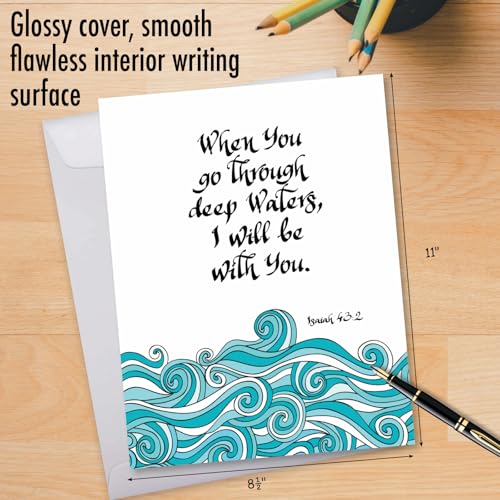 Glossy cover, smooth
flawless interior writing
surface
When You
go through
deep Waters,
I will be
with You.
Isaiah 43:2
11"
8½"